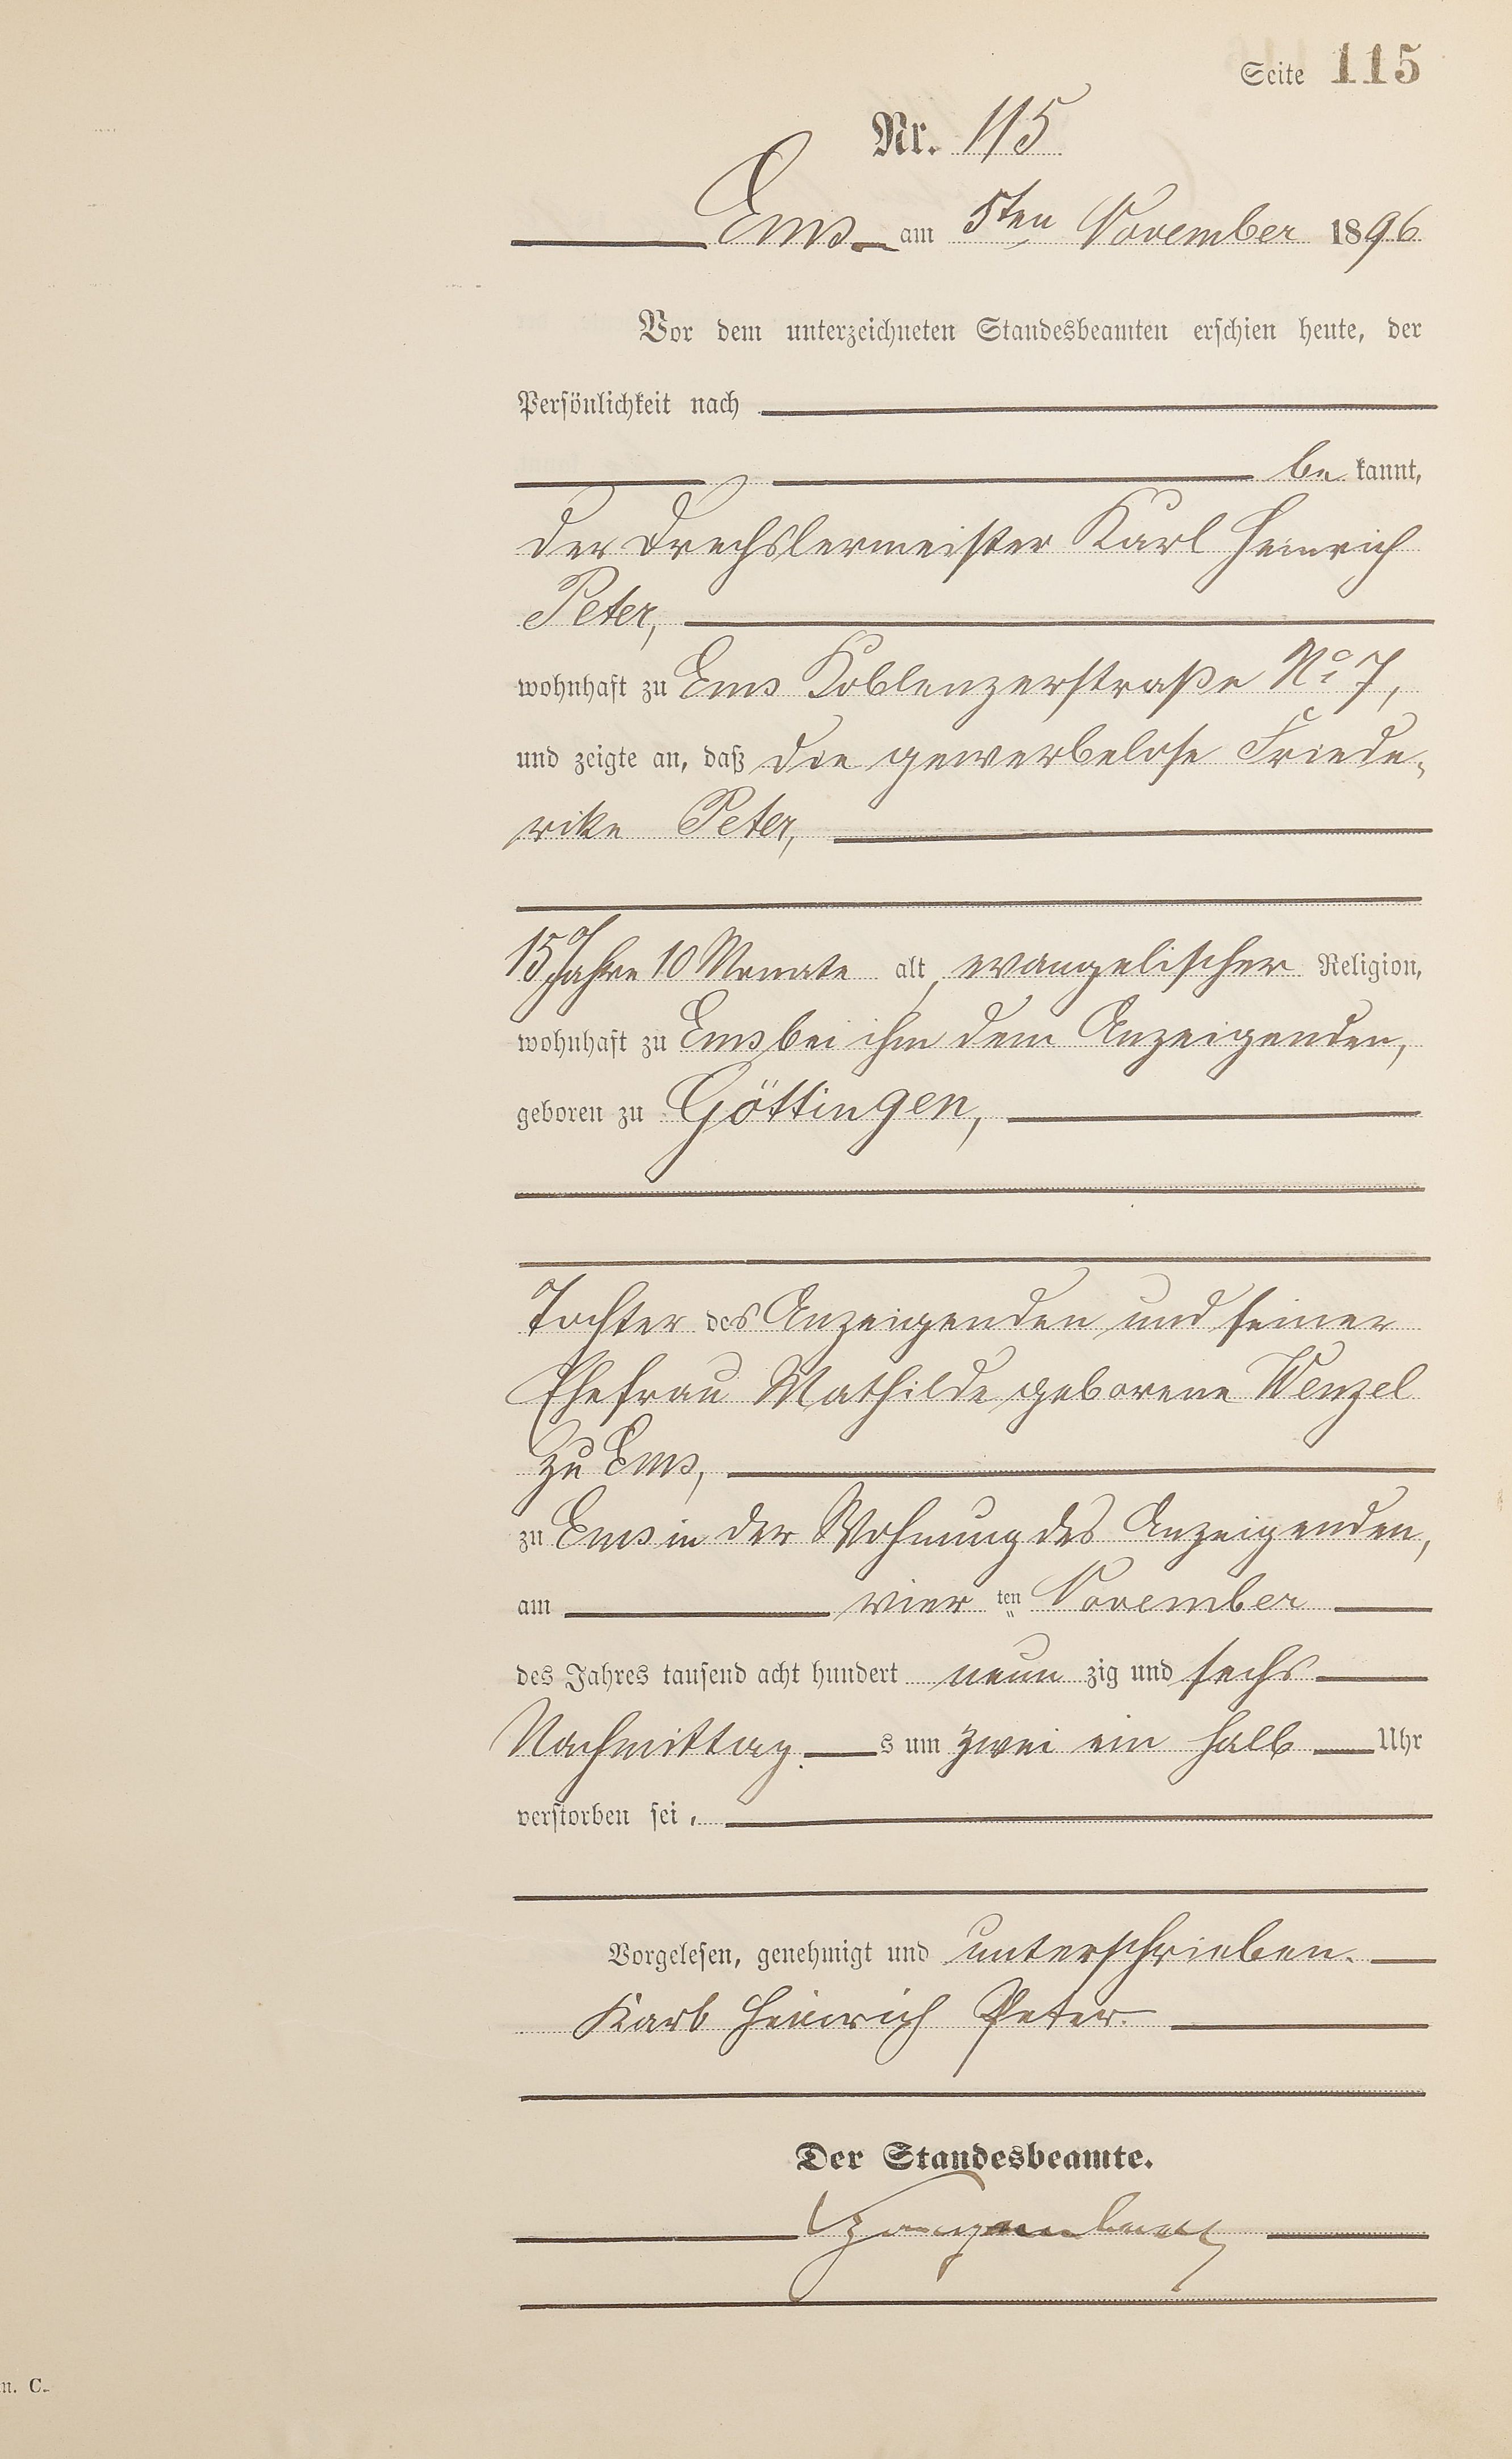 Seite 115
Nr. 115
Ems am 5ten November 1896
Vor dem unterzeichneten Standesbeamten erschien heute, der
Persönlichkeit nach
be kannt,
der Drechslermeister Karl Heinrich
Peter,
wohnhaft zu Ems Koblenzerstraße No 7,
und zeigte an, daß die gewerbelose Friede-
rike Peter,
15 Jahre 10 Monate alt, evangelischer Religion,
wohnhaft zu Ems bei ihm dem Anzeigenden,
geboren zu Göttingen,
Tochter des Anzeigenden und seiner
Ehefrau Mathilde geborene Wenzel
zu Ems,
zu Ems in der Wohnung des Anzeigenden,
am vier ten November
des Jahres tausend acht hundert neun zig und sechs
Nachmittag s um zwei ein halb Uhr
verstorben sei.
Vorgelesen, genehmigt und unterschrieben.
Karl Heinrich Peter
Der Standesbeamte.
n. C.